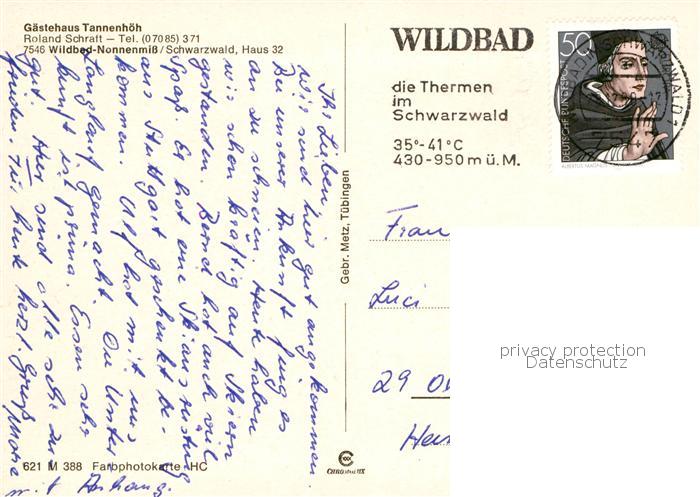 Gästehaus Tannenhöh
Roland Schraft – Tel. (07085) 371
7546 Wildbad-Nonnenmiß/Schwarzwald, Haus 32
Ihr Lieben
wir sind hier gut angekommen.
Bei unserer Ankunft fing es
an zu schneien. Heute haben
wir schon kräftig auf Skiern
gestanden. Bernd hat auch viel
Spaß. Er hat eine Skiausrüstung
aus Stuttgart geschenkt be-
kommen. hat mit uns
Langlauf gemacht. Die Unter
kunft ist prima. Essen sehr
gut. Hier sind alle sehr zu
frieden. Für heute herzl. Grüße
mit Anhang.
621 M 388 Farbphotokarte HC
Gebr. Metz, Tübingen
WILDBAD
die Thermen
im
Schwarzwald
35°-41°C
430-950 m ü. M.
50
DEUTSCHE BUNDESPOST
Frau
Luci
29
privacy protection
Datenschutz